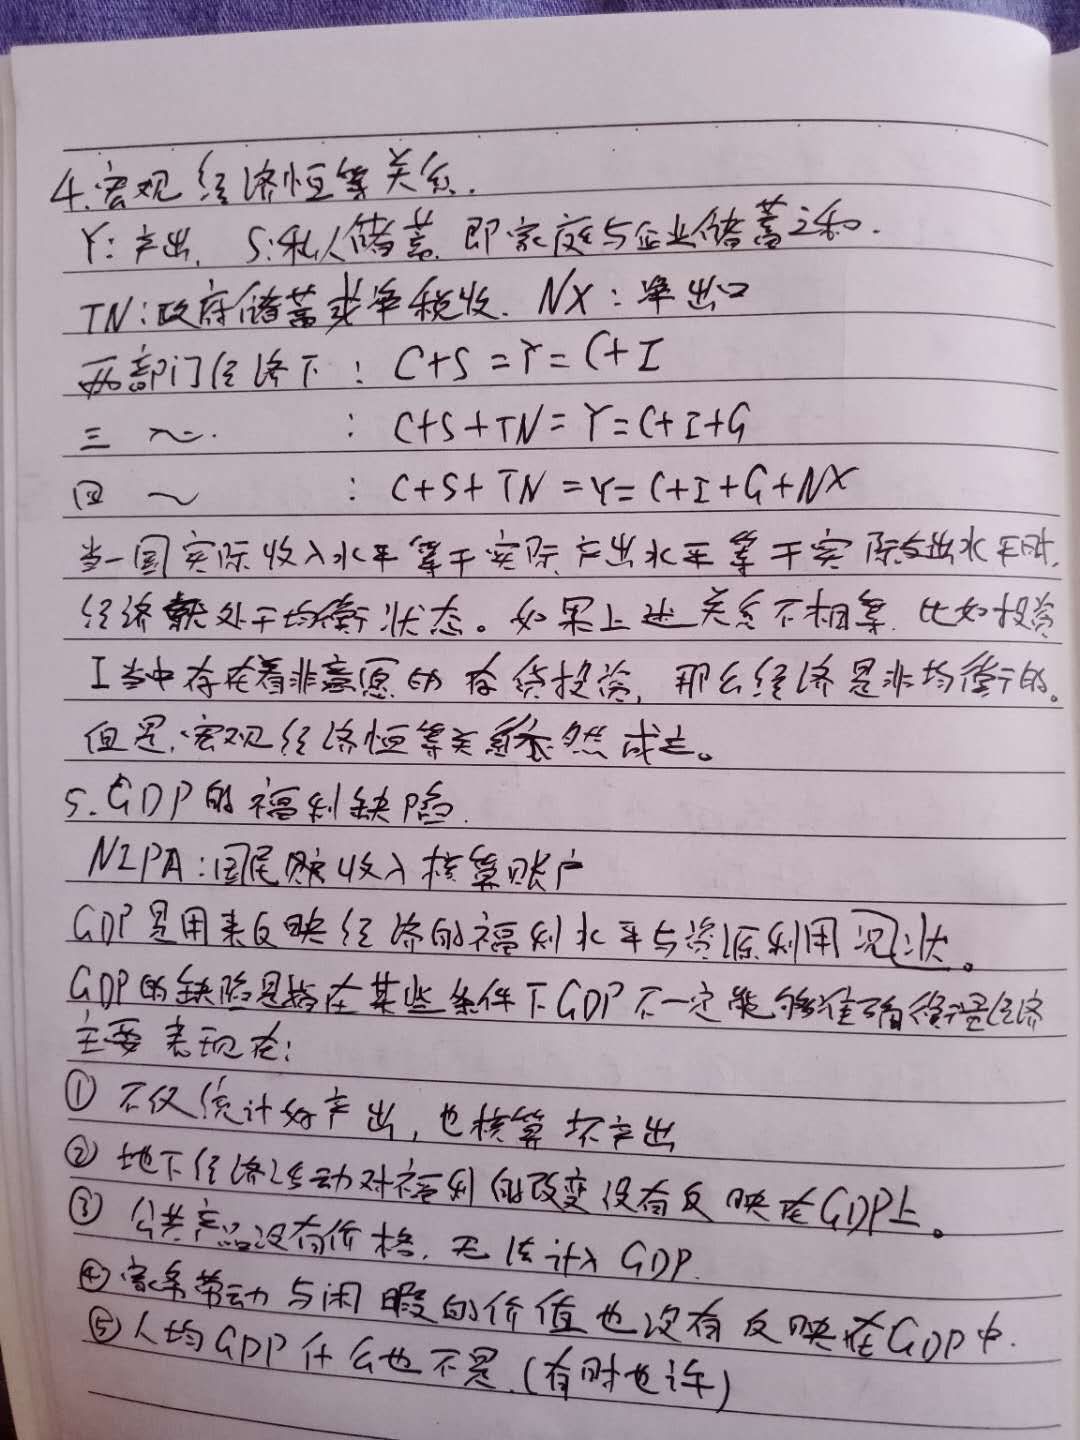 4.宏观经济恒等关系.
Y: 产出, S:私人储蓄, 即家庭与企业储蓄之和.
TN:政府储蓄或净税收. NX: 净出口
两部门经济下: C+S=Y=C+I
三 ～. : C+S+TN=Y=C+I+G
四 ～ : C+S+TN=Y=C+I+G+NX
当一国实际收入水平等于实际产出水平等于实际支出水平时,
经济就处于均衡状态。如果上述关系不相等, 比如投资
I当中存在着非意愿的存货投资, 那么经济是非均衡的。
但是,宏观经济恒等关系依然成立。
5.GDP的福利缺陷.
NIPA:国民收入核算账户
GDP是用来反映经济的福利水平与资源利用状况。
GDP的缺陷是指在某些条件下GDP不一定能够准确衡量经济
主要表现在:
① 不仅统计好产出, 也核算坏产出
② 地下经济活动对福利的改变没有反映在GDP上。
③ 公共产品没有价格, 无法计入GDP.
④家务劳动与闲暇的价值也没有反映在GDP中.
⑤人均GDP什么也不是.(有时也许)